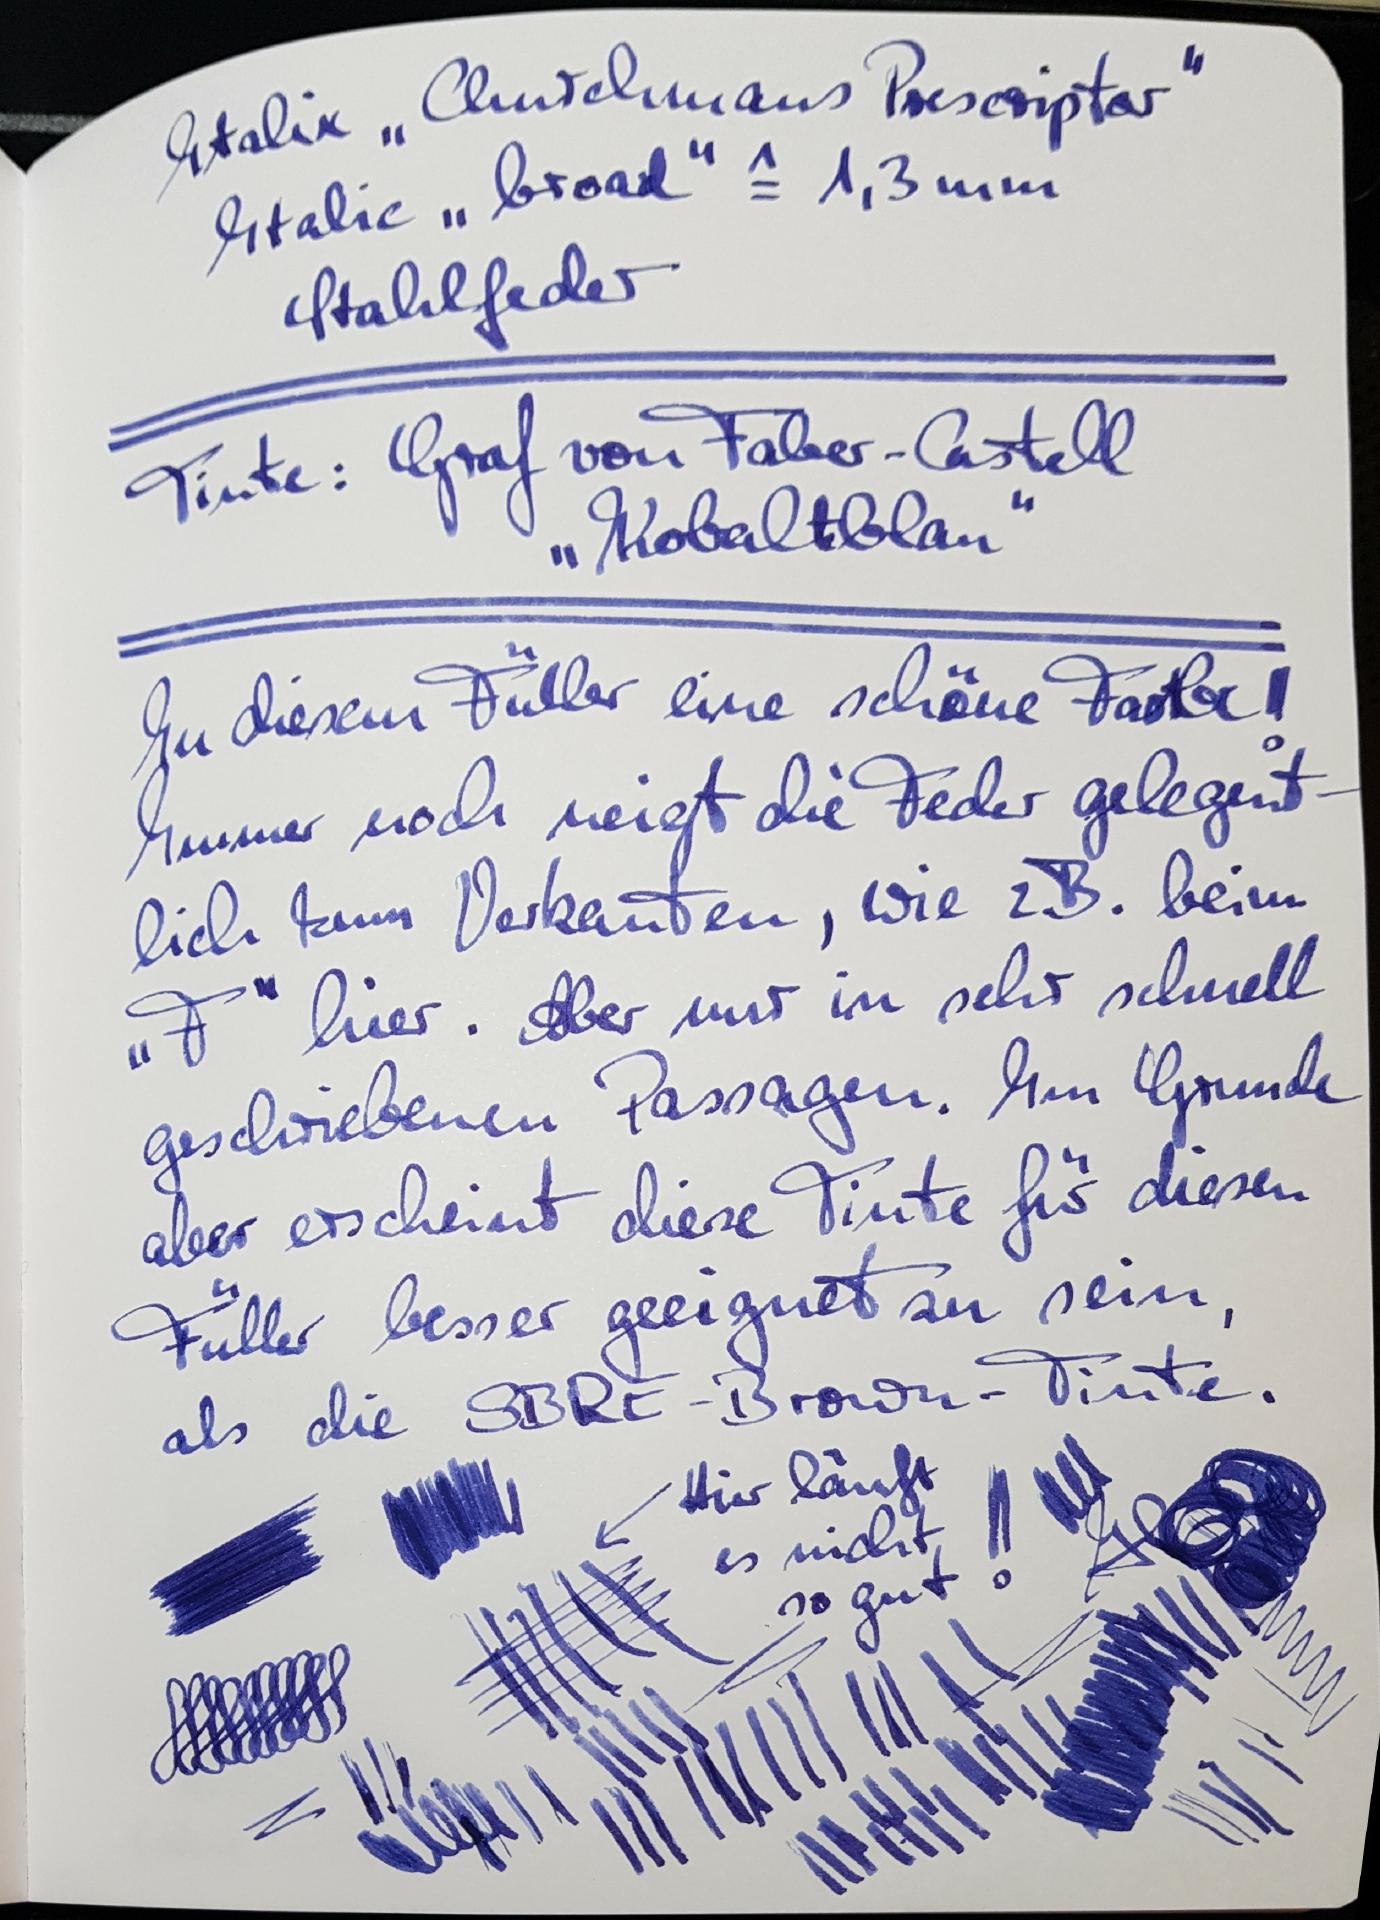 Italix „Churchmans Prescriptor"
Italic „broad" ≙ 1,3mm
Stahlfeder
Tinte: Graf von Faber-Castell
„Kobaltblau"
In diesem Füller eine schöne Farbe!
Immer noch neigt die Feder gelegent-
lich zum Verkanten, wie z.B. beim
„F" hier. Aber nur in sehr schnell
geschriebenen Passagen. Im Grunde
aber erscheint diese Tinte für diesen
Füller besser geeignet zu sein,
als die SBRE-Brown-Tinte.
Hier läuft
es nicht
so gut!